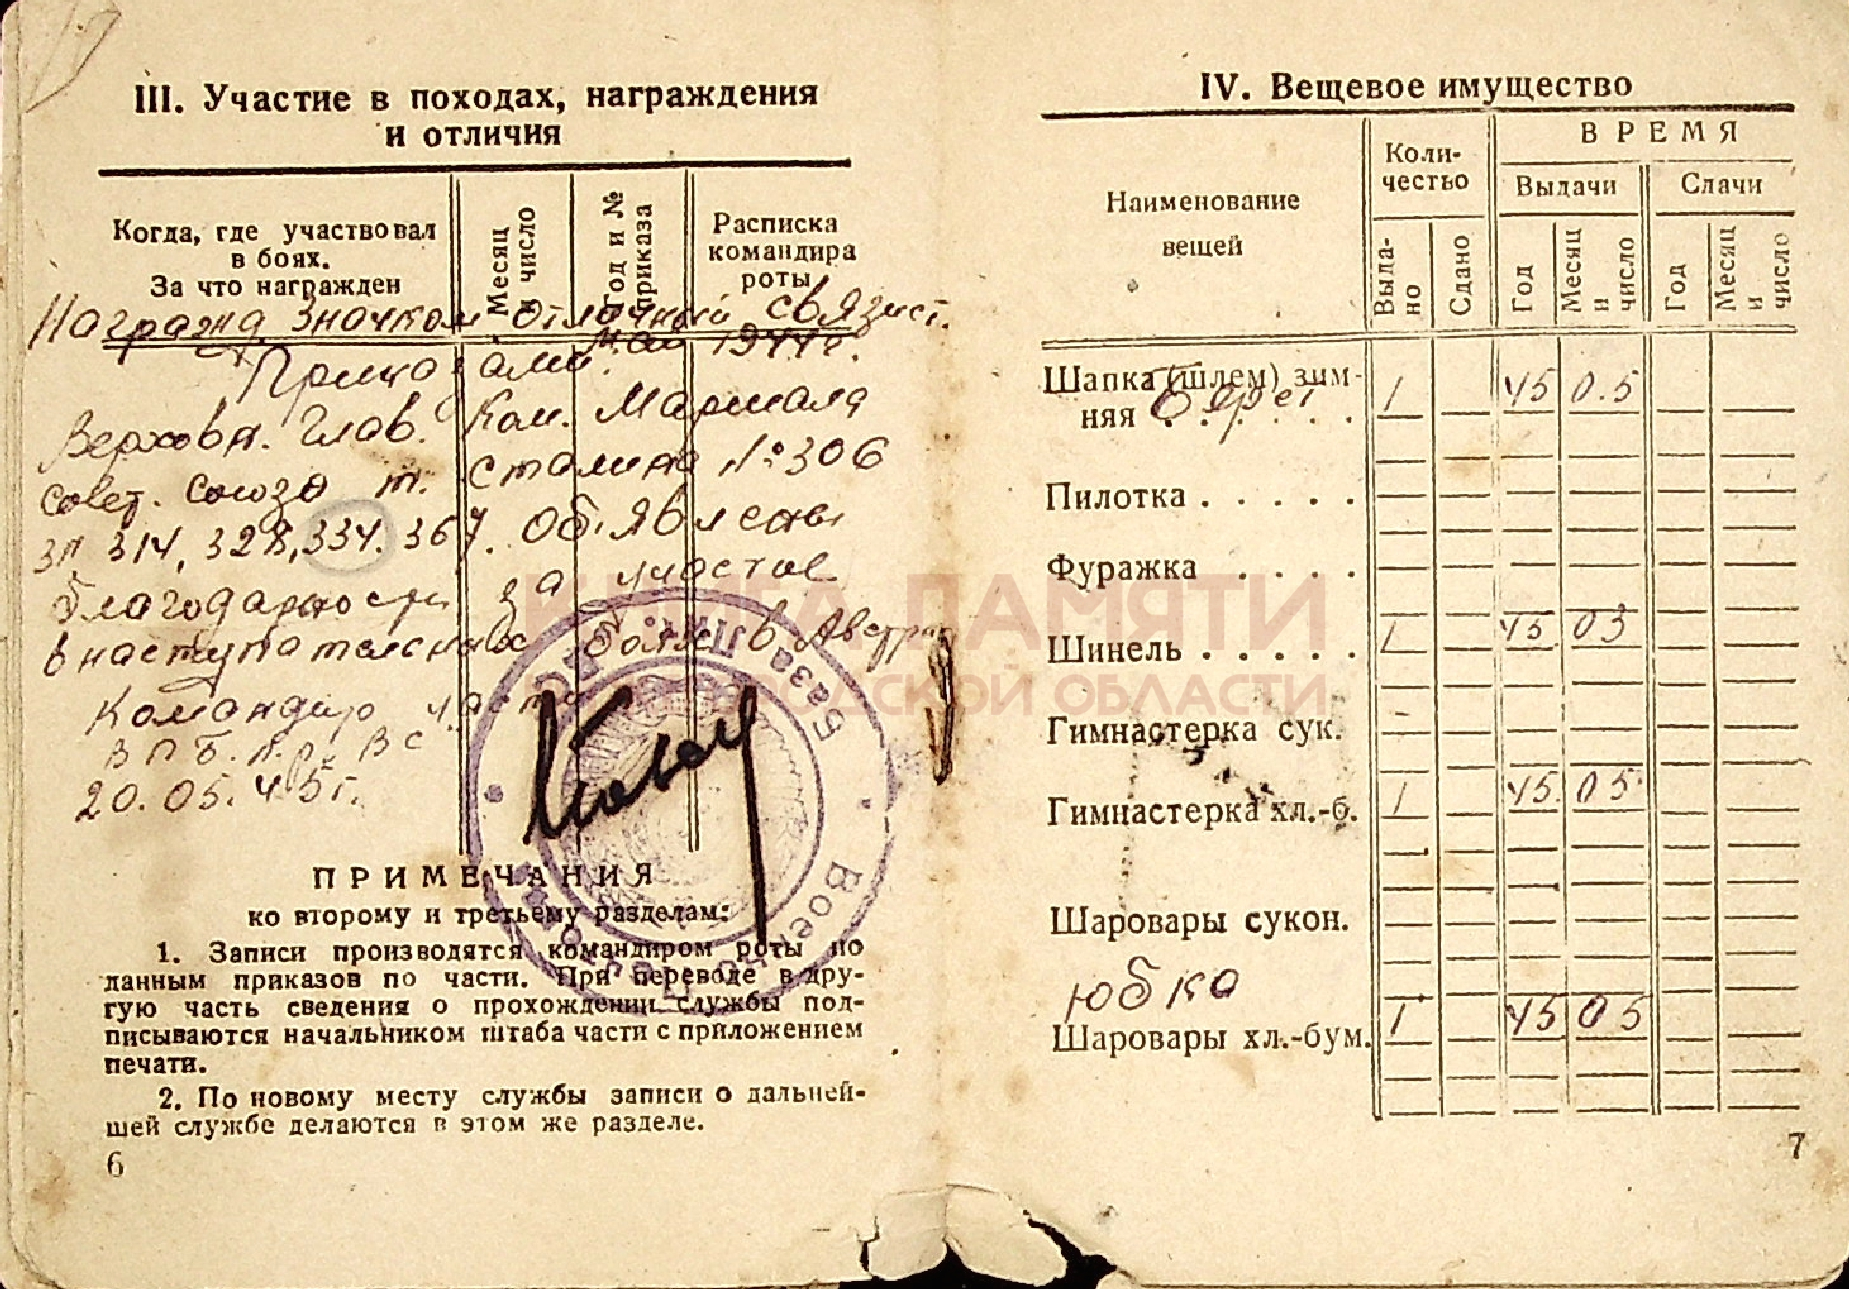 III. Участие в походах, награждения
и отличия
Когда, где участвовал
в боях.
За что награжден
Месяц
и число
Год и №
приказа
Расписка
командира
роты
Награжд. Значком отличный связист.
май 1944г.
Приказами
Верховн. Глав. Ком. Маршала
Совет. Союза т. Сталина №306
314, 328, 334. 367. об'явлены
благодарности за участие
в наступательных боях в Австрии
Командир части
ВПБ.
20.05.45г.
ПРИМЕЧАНИЯ
ко второму и третьему разделам:
1. Записи производятся командиром роты по
данным приказов по части. При переводе в дру-
гую часть сведения о прохождении службы под-
писываются начальником штаба части с приложением
печати.
2. По новому месту службы записи о дальней-
шей службе делаются в этом же разделе.
6
IV. Вещевое имущество
Наименование
вещей
Коли-
чество
ВРЕМЯ
Выдачи
Сдачи
Выда-
но
Сдано
Год
Месяц
и
число
Год
Месяц
и
число
Шапка (шлем) зим-
няя Берет . . . . 1 45 05
Пилотка . . . . .
Фуражка . . . .
Шинель . . . . . 1 45 03
Гимнастерка сук.
Гимнастерка хл.-б. 1 45 05
Шаровары сукон.
юбка
Шаровары хл.-бум. 1 45 05
7
КНИГА ПАМЯТИ
ОБЛАСТИ
База